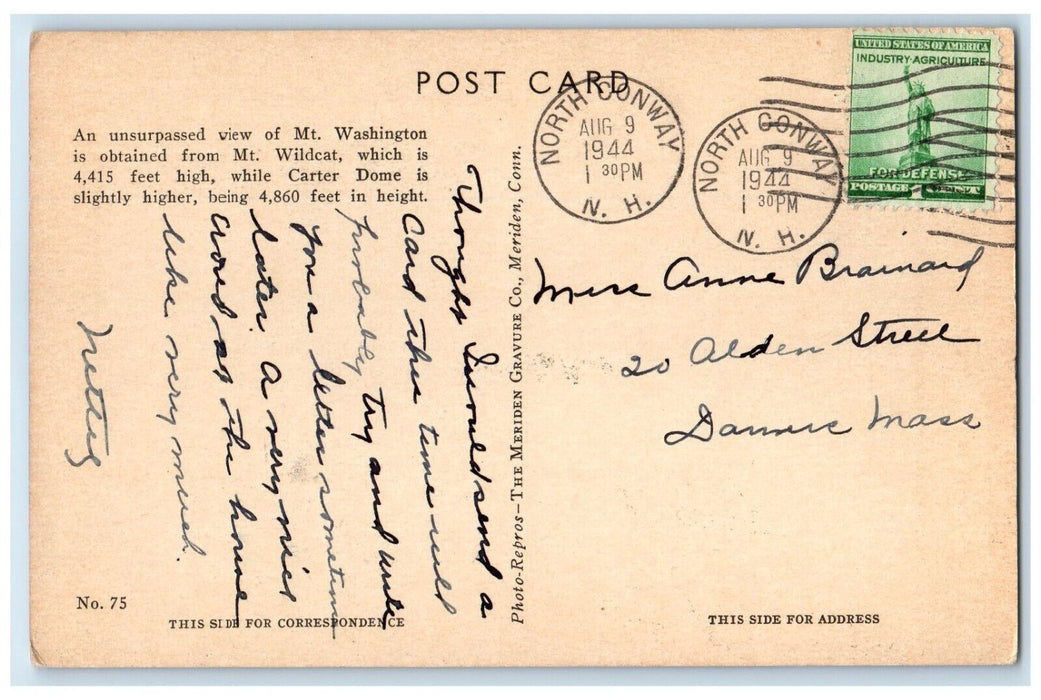 POST CARD
An unsurpassed view of Mt. Washington
is obtained from Mt. Wildcat, which is
4,415 feet high, while Carter Dome is
slightly higher, being 4,860 feet in height.
Thought I would send a
card this time will
probably try and write
for a letter sometime
later. A very nice
crowd at the house
like very much.
No. 75
THIS SIDE FOR CORRESPONDENCE
Photo-Repros—THE MERIDEN GRAVURE CO., Meriden, Conn.
NORTH CONWAY
AUG 9
1944
1 30 PM
N. H.
NORTH CONWAY
AUG 9
1944
1 30 PM
N. H.
UNITED STATES OF AMERICA
INDUSTRY·AGRICULTURE
FOR DEFENSE
POSTAGE 1 CENT
Miss Anne Brainard
20 Alden Street
Danvers Mass
THIS SIDE FOR ADDRESS